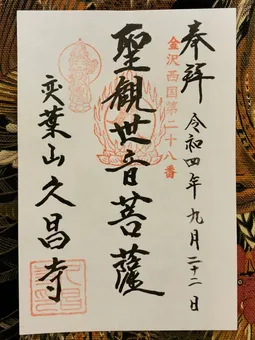 奉拝
令和四年九月二十二日
金沢西国第二十八番
聖観世音菩薩
奕葉山久昌寺